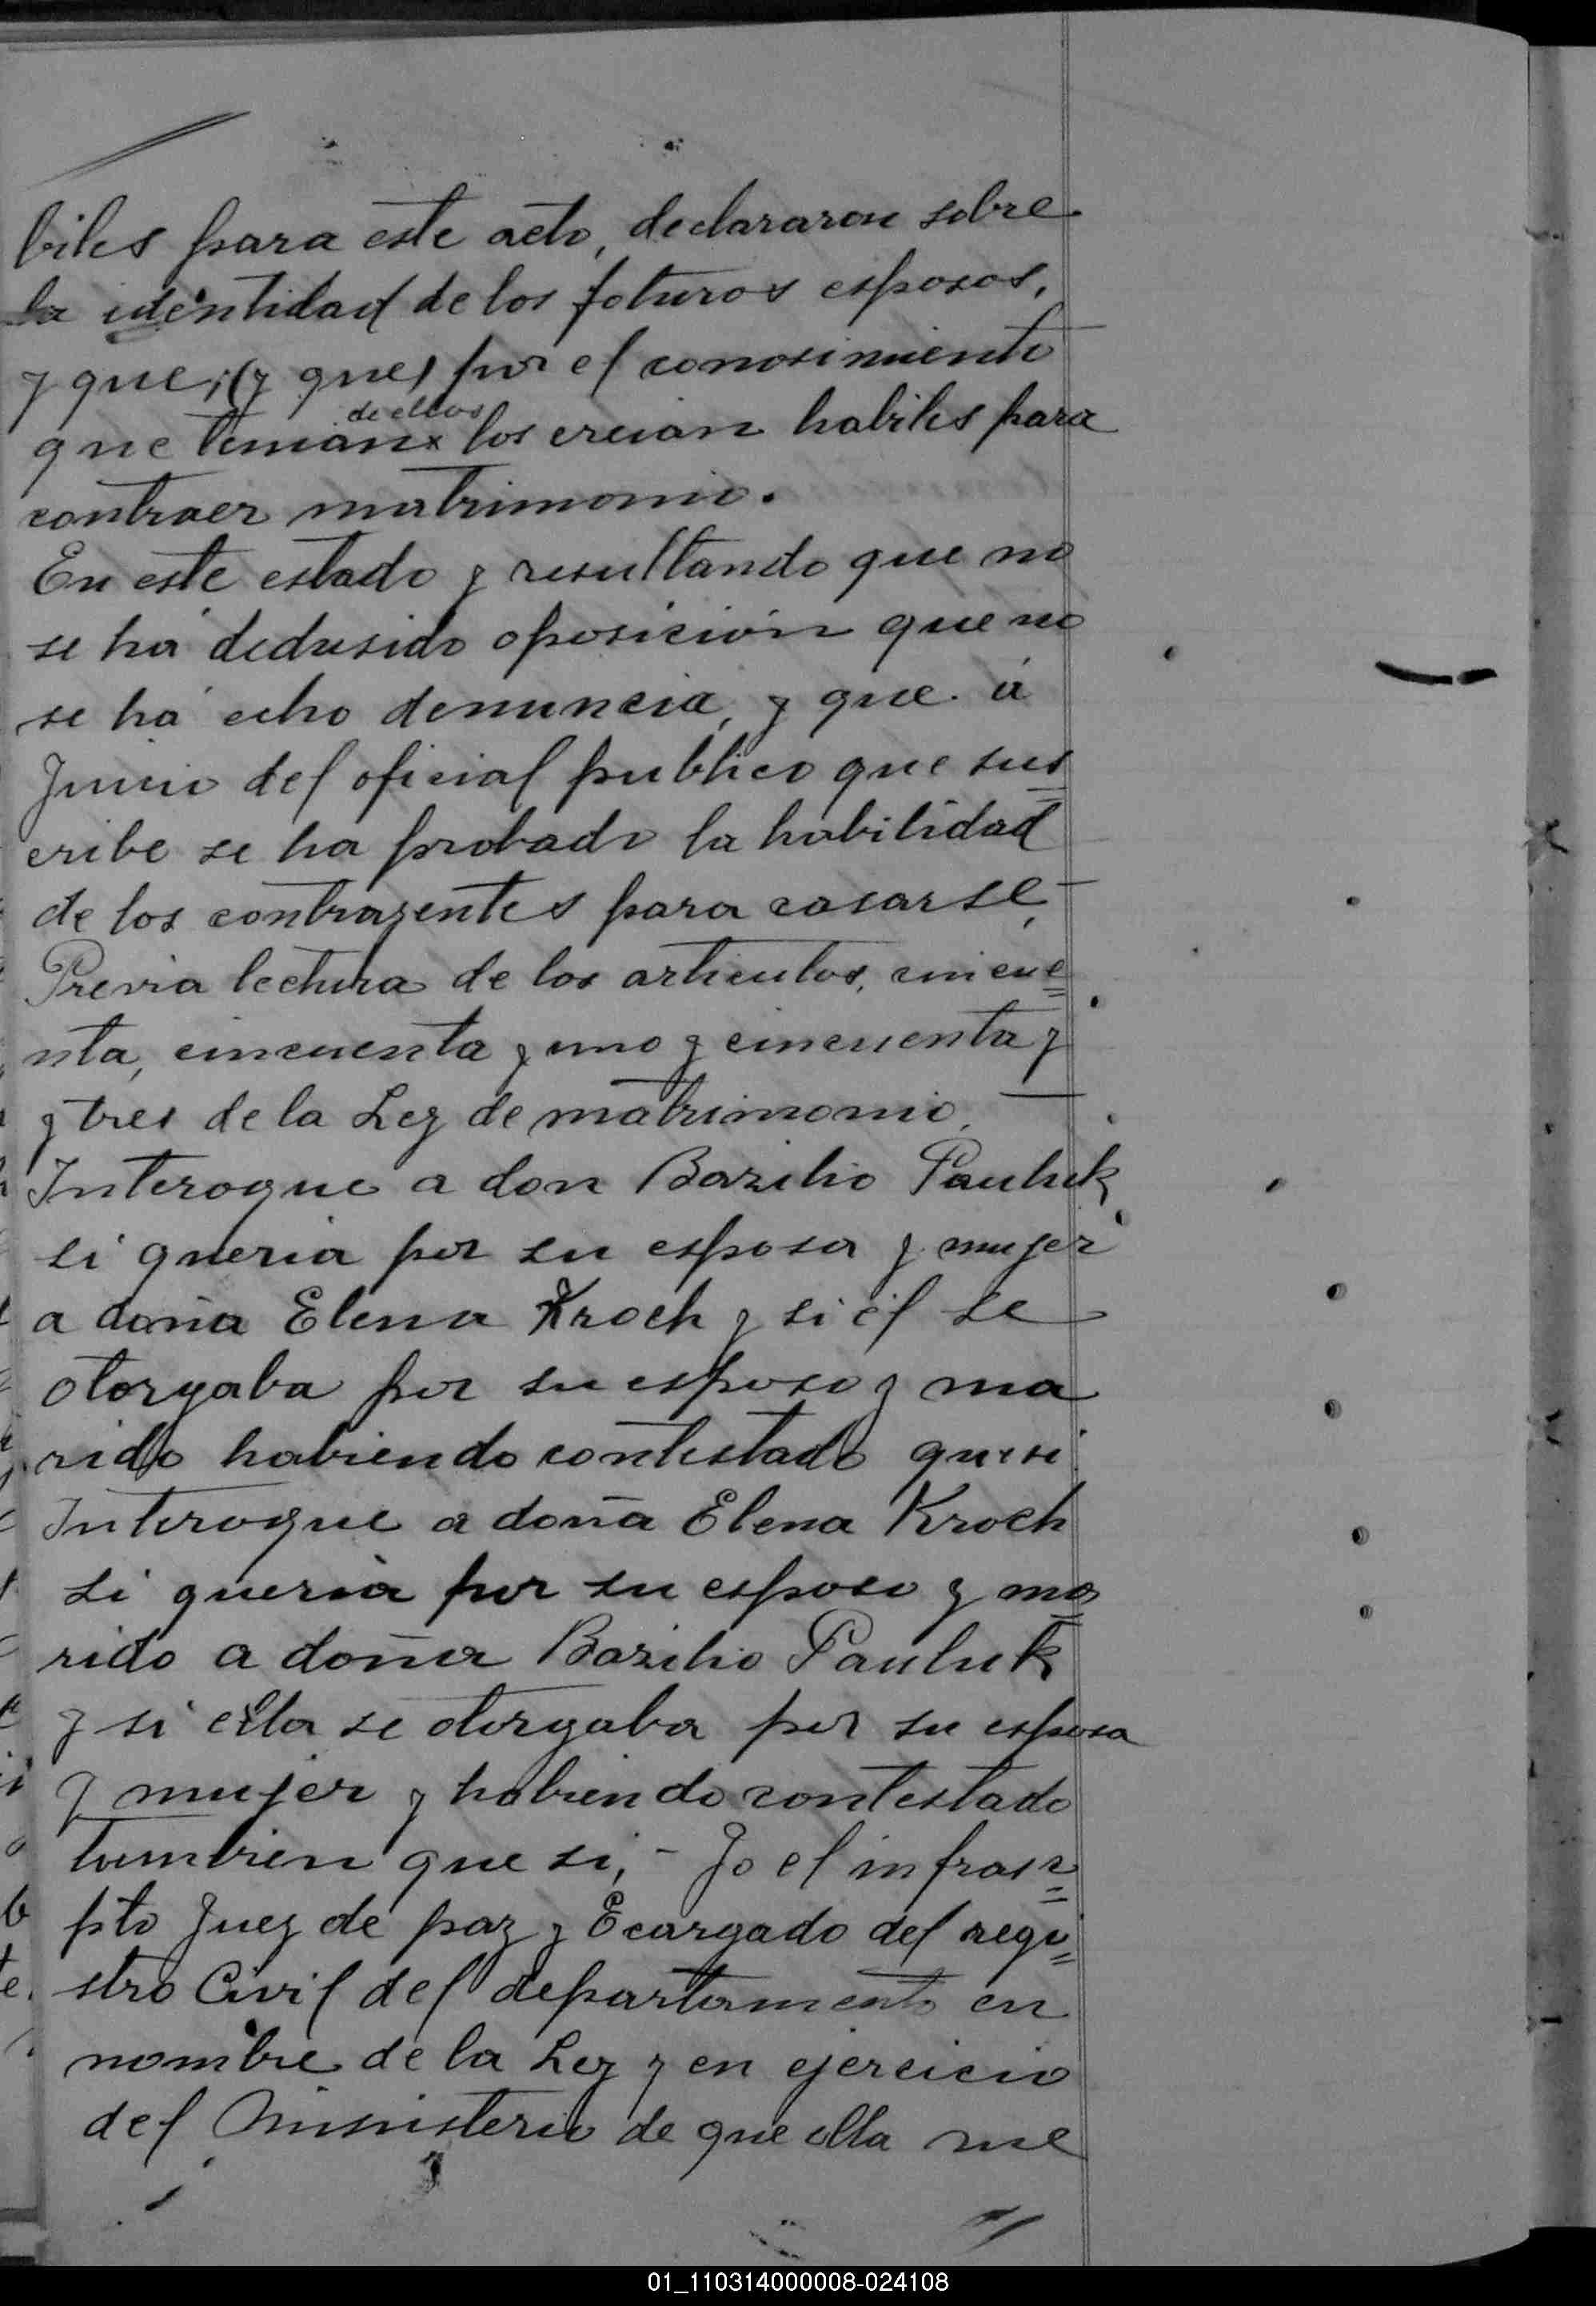 biles para este acto, declararon sobre
la identidad de los foturos esposos,
y que, (y que) por el conosimiento
de ellos
que tenian x los creian habiles para
contraer matrimonio.
En este estado y resultando que no
se há dedusido oposición que no
se há echo denuncia, y que á
Juicio del oficial publico que sus=
cribe se ha probado la habilidad
de los contrayentes para casarse,
Previa lectura de los articulos, cincue=
nta, cincuenta y uno y cincuenta y
y tres de la Ley de matrimonio,
Interogue a don Bazilio Pauluk
si queria por su esposa y mujer
a doña Elena Kroch y si él se
otorgaba por su esposo y ma
rido habiendo contestado que si.
Interogue a doña Elena Kroch
si queria por su esposo y ma=
rido a doña Bazilio Pauluk
y si ella se otorgaba por su esposa
y mujer y habiendo contestado
tambien que si, - Jo el infras=
pto Juez de paz y Ecargado del regi=
stro Civil del departamento en
nombre de la Ley y en ejercicio
del Ministerio de que ella me
01_110314000008-024108